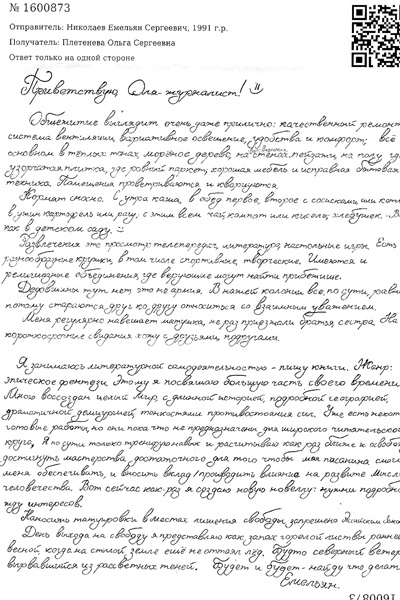 № 1600873
Отправитель: Николаев Емельян Сергеевич, 1991 г.р.
Получатель: Плетенева Ольга Сергеевна
Ответ только на одной стороне
Приветствую, Оля-журналист!
Общежитие выглядит очень даже прилично: качественный ремонт
система вентиляции, вариативное освещение, удобства и комфорт; всё
основном в тёплых тонах морёного дерева, на стенах пейзажи, на полу где
узорчатая плитка, где ровный паркет; хорошая мебель и исправная бытовая
техника. Помещения проветриваются и кварцуются.
Кормят сносно. С утра каша, в обед первое, второе с сосисками или котл
в ужин картофель или рагу, с этим всем чай, компот или кисель, хлебушек.
как в детском саду.
Развлечения это просмотр телепередач, литература, настольные игры. Есть
разнообразные кружки, в том числе спортивные, творческие. Имеются и
религиозные объединения, где верующие могут найти прибежище.
Дедовщины тут нет, это не армия. В нашей колонии все, по сути, равны
потому стараются друг ко другу относиться со взаимным уважением.
Меня регулярно навещает матушка, не раз приезжали братья, сестра. На
короткосрочные свидания хожу с друзьями, подругами.
Я занимаюсь литературной самодеятельностью - пишу книги. Жанр:
эпическое фентези. Этому я посвящаю большую часть своего времени
Мною воссоздан целый Мир с длинной историей, подробной географией,
драматичной демиургией, тонкостями противостояния сил. Уже есть некот
готовые работы, но они пока что не предназначены для широкого читательского
круга. Я по сути только тренируюсь и рассчитываю как раз ближе к освобо
достигнуть мастерства, достаточного для того чтобы моя писанина смогла
меня обеспечивать, и вносить вклад/производить влияние на развитие Мысли
человечества. Вот сейчас как раз я создаю новую новеллу:
жду интересов.
Наносить татуировки в местах лишения свободы запрещено
День выхода на свободу я представляю как запах горелой листвы ранней
весной, когда на стылой земле ещё не оттаял лёд. Будто северный ветер
вырвавшийся из расветных теней. Будет и будет - найду что делать
Емельян.
1600873